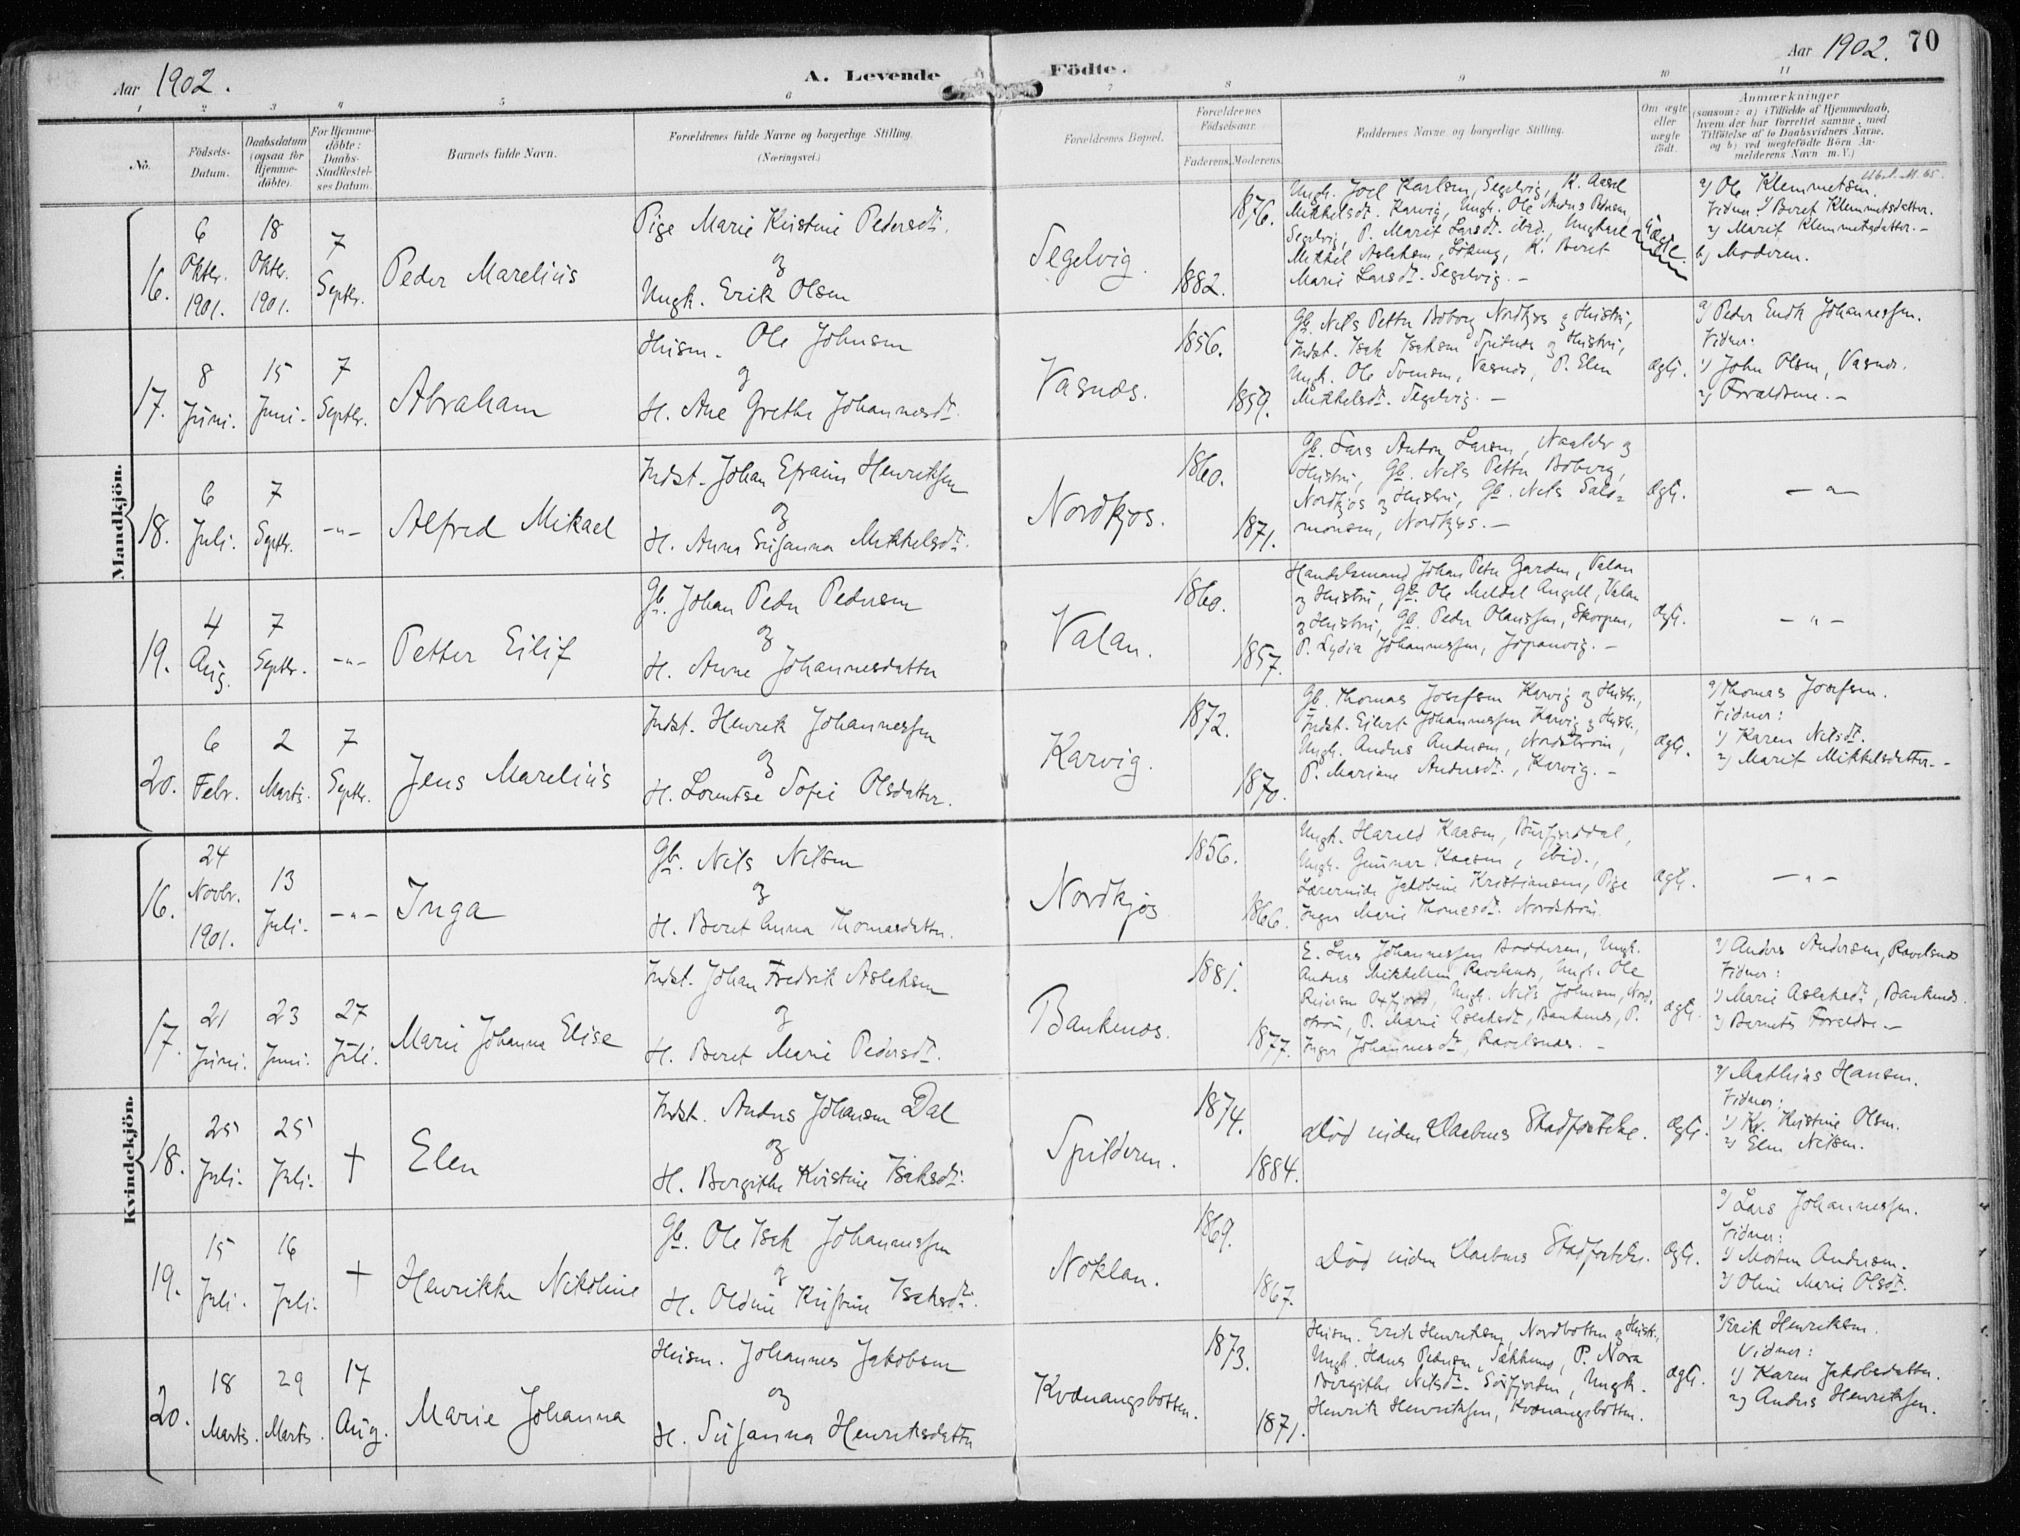 Aar 1902.
A. Levende Födte.
Aar 1902. 70
1 2 3 4 5 6 7 8 9 10 11
No.
Födsels-Datum.
Daabsdatum (ogsaa for Hjemme-döbte).
For Hjemme-döbte: Daabs-Stadfæstel-ses Datum.
Barnets fulde Navn.
Forældrenes fulde Navne og borgerlige Stilling.
(Næringsvei.)
Forældrenes Bopæl.
Forældrenes Födselsaar.
Faderens. Moderens.
Faddernes Navne og borgerlige Stilling.
Om ægte eller uægte födt.
Anmærkninger
(saasom: a) i Tilfælde af Hjemmedaab, hvem der har forrettet samme, med Tilföielse af to Daabsvidners Navne, og b) ved uegtefödte Börn An-melderens Navn m. V.)
Mandkjön.
16.
6 Oktbr. 1901.
18 Oktbr. 1901.
7 Septbr.
Peder Marelius
Pige Marie Kristine Pedersdtr.
og
Ungk. Erik Olsen
Segelvig.
1876.
1882.
Ungk. Joel Karlsen, Segelvig, K.
Mikkelsdtr. Karvig, Ungk. Ole
Segelvig, P. Marit Larsdtr. ibid., Ungkarl
Mikkel Aslaksen, K. Beret
Marie Larsdtr. Segelvig. -
Uægte.
a) Ole Klemmetsen.
Vidner: 1) Beret Klemmetsdatter.
2) Marit Klemmetsdatter. -
b) Moderen.
17.
8 Juni.
15 Juni.
7 Septbr.
Abraham
Husm. Ole Johnsen
og
H. Ane Grethe Johannesdtr.
Vasnæs.
1856.
1859.
Gb. Nils Petter Boberg Nordkjos og Hustru,
Indst. Isak Isaksen Spildernes og Hustru,
Ungk. Ole Svensen, Vasnæs, P. Elen
Mikkelsdtr. Segelvig. -
ægte.
a) Peder Endk Johannessen.
Vidner:
1) John Olsen, Vasnæs.
2) Forældrene. -
18.
6 Juli.
7 Septbr.
-"-
Alfred Mikael
Indst. Johan Efraim Henriksen
og
H. Anna Susanna Mikkelsdtr.
Nordkjos.
1860.
1871.
Gb. Lars Anton Larsen, og
Hustru, Gb. Nils Petter Boberg,
Nordkjos og Hustru, Gb. Nils Salo=
monsen, Nordkjos. -
ægte.
-"-
19.
4 Aug.
7 Septbr.
-"-
Petter Eilif
Gb. Johan Peder Pedersen
og
H. Anne Johannesdatter
Valan.
1860.
1857.
Handelsmand Johan Peter Garden, Valan
og Hustru, Gb. Ole Meldal Angell, Valan
og Hustru, Gb. Peder Olaussen, Skorpen,
P. Lydia Johannessen, -
ægte.
-"-
20.
6 Febr.
2 Marts.
7 Septbr.
Jens Marelius
Indst. Henrik Johannessen
og
H. Lorentse Sofie Olsdatter.
Karvig.
1872.
1870.
Gb. Thomas Josefsen Karvig og Hustr.,
Indst. Eilert Johannessen Karvig og Hustr.,
Ungk. Anders Andersen, Nordström,
P. Mariane Andersdtr., Karvig. -
ægte.
a) Thomas Josefsen.
Vidner:
1) Karen Nilsdtr.
2) Marit Mikkelsdatter. -
Kvindekjön.
16.
24 Novbr. 1901.
13 Juli.
-"-
Inga
Gb. Nils Nilsen
og
H. Beret Anna Thomasdatter.
Nordkjos
1856.
1866.
Ungk. Harald Kaasen, Burfjorddal,
Ungk. Gunnar Kaasen, ibid.,
Lærerinde Jakobine Kristiansen, Pige
Inger Marie Thomasdtr. Nordström.
ægte.
-"-
17.
21 Juni.
23 Juni.
27 Juli.
Marie Johanna Elise
Indst. Johan Fredrik Aslaksen
og
H. Beret Marie Pedersdtr.
Bankenæs.
1881.
1877.
E. Lars Johannessen Badderen, Ungk.
Anders Mikkelsen Ravelsnæs, Ungk. Ole
Reiersen Oxfjord, Ungk. Nils Johnsen, Nord-
ström, P. Marie Aslaksdtr, Bankenæs, P.
Inger Johannesdtr, Ravelsnæs. -
ægte.
a) Anders Andersen, Ravelsnæs
Vidner:
1) Marie Aslaksdtr, Bankenæs.
2) Barnets Forældre -
18.
25 Juli.
25 Juli.
†
Elen
Indst. Anders Johansen Dal
og
H. Bergithe Kristine Isaksdtr.
Spilderen.
1874.
1884.
Död uden Daabens Stadfæstelse.
ægte.
a) Mathias Hansen.
Vidner:
1) K. Kristine Olsen.
2) Elen Nilsen.
19.
15 Juli.
16 Juli.
†
Henrikke Nikoline
Gb. Ole Isak Johannessen
og
H. Oldine Kristine Isaksdtr.
Noklan.
1869.
1867.
Död uden Daabens Stadfæstelse.
ægte.
a) Lars Johannessen.
Vidner:
1) Morten Andersen.
2) Oline Marie Olsdtr.
20.
18 Marts.
29 Marts.
17 Aug.
Marie Johanna
Husm. Johannes Jakobsen
og
H. Susanna Henriksdatter
Kvænangsbotten.
1873.
1871.
Husm. Erik Henriksen, Nordbotten og Hustr.,
Ungk. Hans Pedersen, P. Nora
Bergithe Nilsdtr. Sörfjorden, Ungk.
Henrik Henriksen, Kvænangsbotten.
ægte.
a) Erik Henriksen.
Vidner:
1) Karen Jakobsdatter.
2) Anders Henriksen.